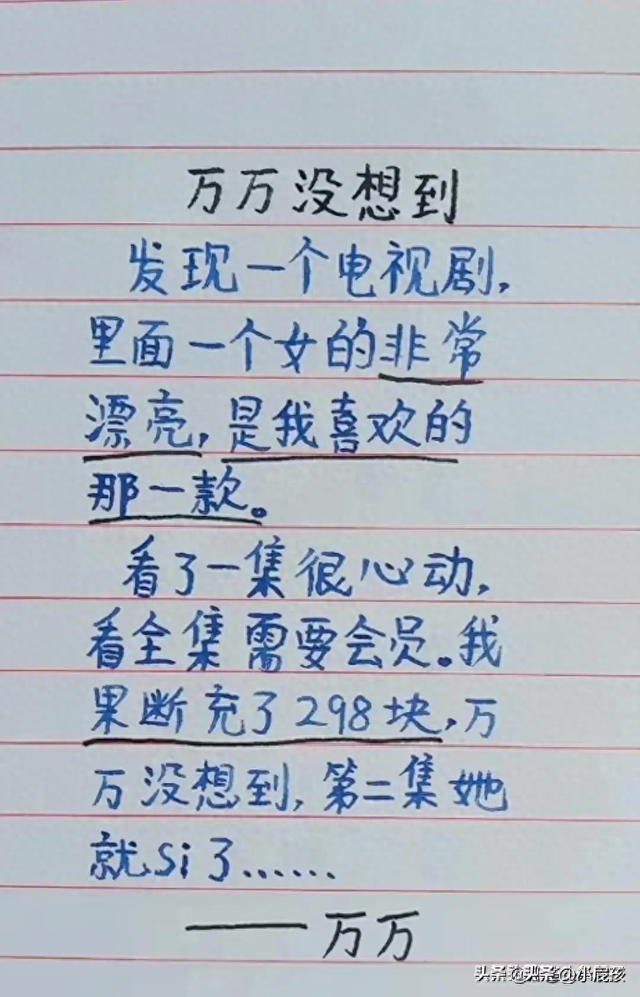 万万没想到
发现一个电视剧,
里面一个女的非常
漂亮,是我喜欢的
那一款。
看了一集很心动,
看全集需要会员。我
果断充了298块,万
万没想到,第二集她
就si了......
——万万